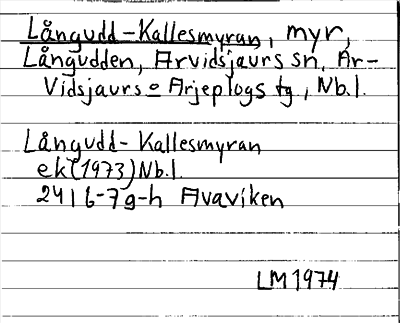 Långudd-Kallesmyran, myr,
Långudden, Arvidsjaurs sn, Ar-
vidsjaurs o Arjeplogs tg, Nb.l.
Långudd-Kallesmyran
ek(1973)Nb.l.
241 6-7g-h Avaviken
LM1974